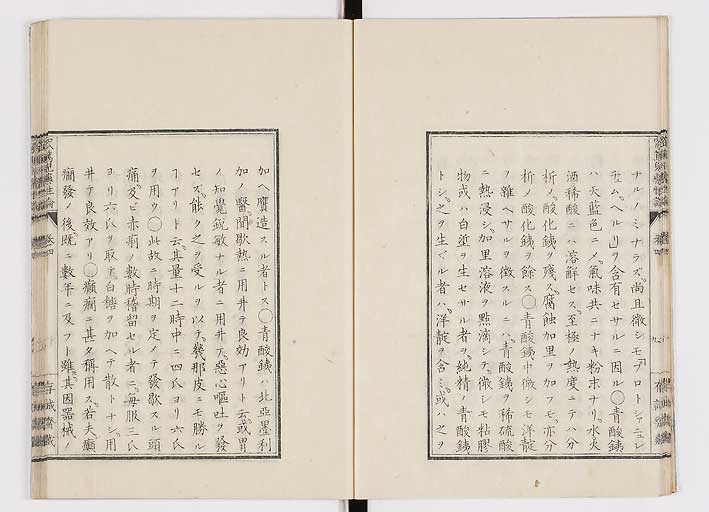 ナルノミナラズ尚且微シモ「プロトシアニュレ
ハ天藍色ニメ氣味共ニナキ粉末ナリ水火
酒稀酸ニハ溶解セズ至極ノ熱度ニテハ分
析メ酸化銕ヲ殘ス腐蝕加里ヲ加フモ亦分
析メ酸化銕ヲ餘ス○青酸銕中微シモ洋靛
ヲ雜ヘサルヲ徴スルニハ青酸銕ヲ稀硫酸
ニ熱浸シ加里溶液ヲ點滴シテ微シモ粘膠
物或ハ白堊ヲ生セサル者ヲ純精ノ青酸銕
トシ之ヲ生ズル者ハ洋靛ヲ含ミ或ハ之ヲ
加ヘ贋造スル者トス○青酸銕ハ北亞墨利
加ノ醫間歇熱ニ用井テ良効アリト云或胃
ノ知覺鋭敏ナル者ニ用井テ惡心嘔吐ヲ發
セズ能ク之ヲ受ルヲ以テ幾那皮ニモ勝ル
アリト云其量十二時中ニ四氏ヨリ六氏
ヲ用ウ○此故ニ時期ヲ定メテ發歇スル頭
痛及ビ赤痢ノ數時稽留セル者ニ毎服三氏
ヨリ六氏ヲ取テ白糖ヲ加ヘテ散トナシ用
井テ良効アリ○癲癇ニ甚タ稱用ス若夫癲
癇發ノ後既ニ數年ニ及フト雖其因器械ノ
卷四